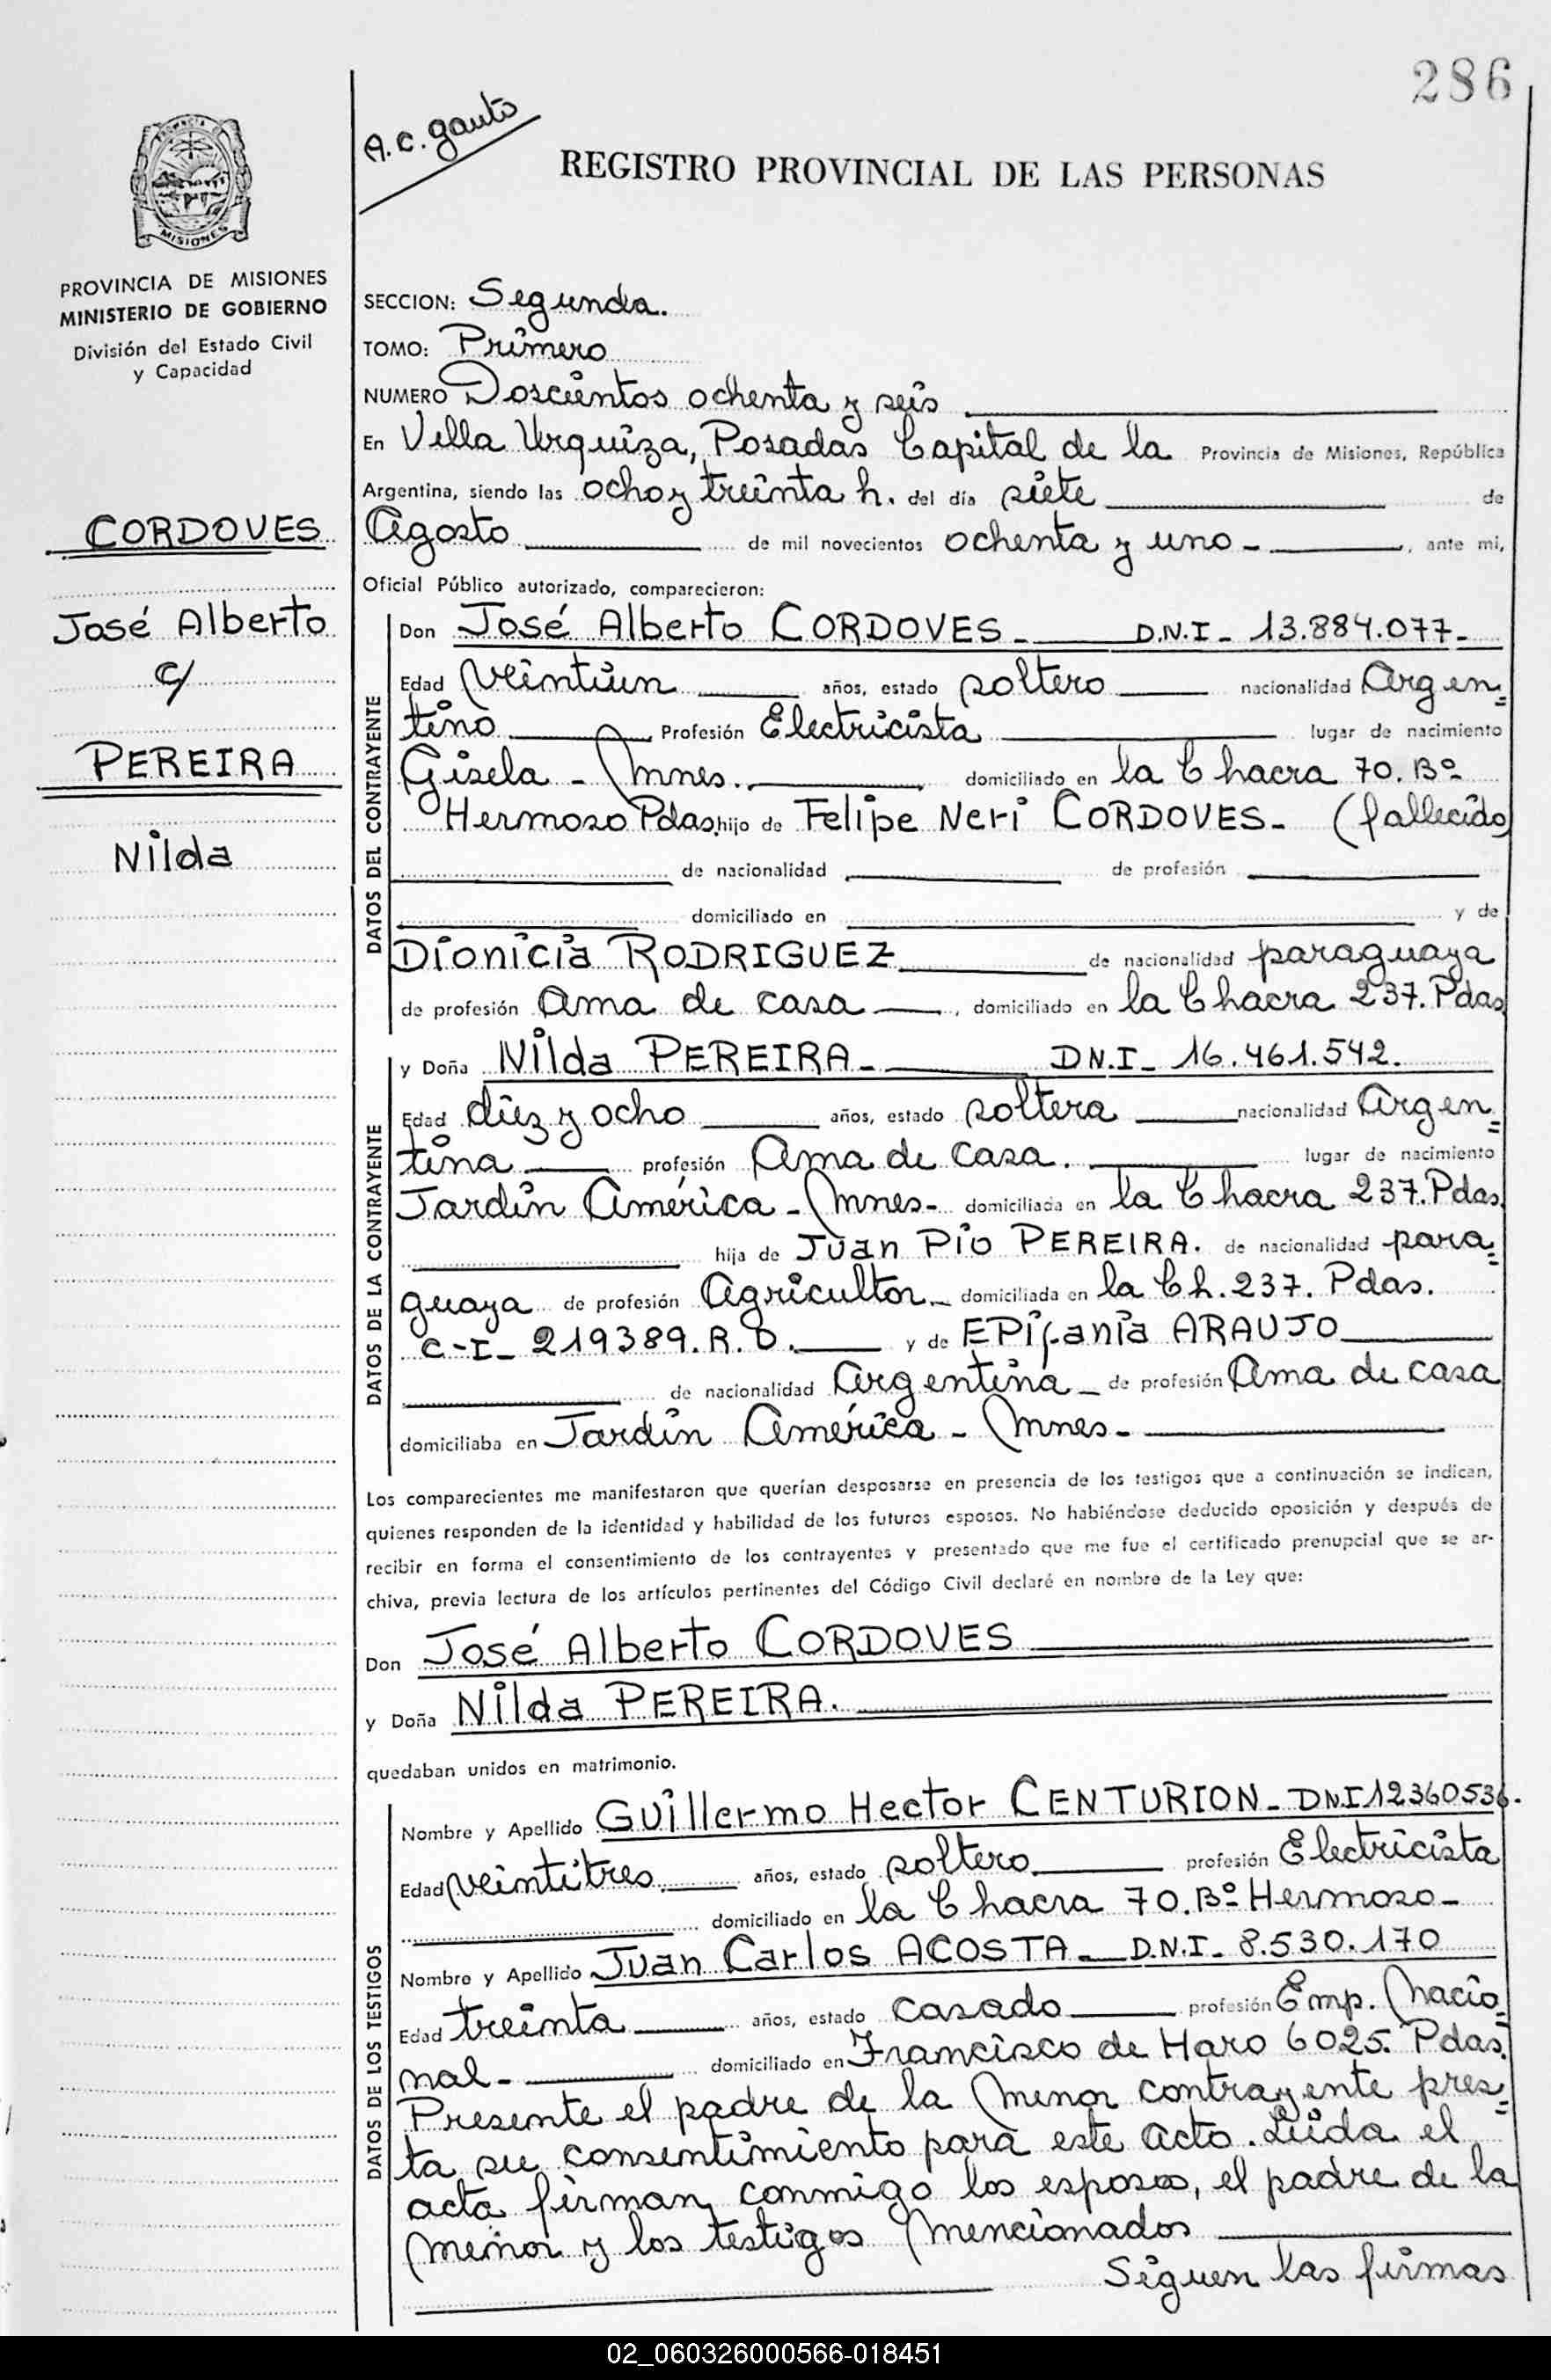 286
A.C. Gauto
REGISTRO PROVINCIAL DE LAS PERSONAS
PROVINCIA
MISIONES
PROVINCIA DE MISIONES
MINISTERIO DE GOBIERNO
División del Estado Civil
y Capacidad
CORDOVES
José Alberto
c/
PEREIRA
Nilda
SECCION: Segunda.
TOMO: Primero
NUMERO Doscientos ochenta y seis
En Villa Urquiza, Posadas Capital de la Provincia de Misiones, República
Argentina, siendo las ocho y treinta h. del día siete de
Agosto de mil novecientos ochenta y uno - , ante mi,
Oficial Público autorizado, comparecieron:
DATOS DEL CONTRAYENTE
Don José Alberto CORDOVES - D.N.I - 13.884.077-
Edad veintiun años, estado soltero nacionalidad Argen=
tino Profesión Electricista lugar de nacimiento
Gisela - Mnes. domiciliado en la Chacra 70. Bº
Hermoso Pdas, hijo de Felipe Neri CORDOVES - (fallecido)
de nacionalidad de profesión
domiciliado en y de
Dionicia RODRIGUEZ de nacionalidad paraguaya
de profesión Ama de casa , domiciliado en la Chacra 237. Pdas
DATOS DE LA CONTRAYENTE
y Doña Nilda PEREIRA - D.N.I - 16.461.542.
Edad diez y ocho años, estado soltera nacionalidad Argen=
tina profesión Ama de casa. lugar de nacimiento
Jardín América - Mnes - domiciliada en la Chacra 237. Pdas.
hija de Juan Pío PEREIRA. de nacionalidad para=
guaya de profesión Agricultor - domiciliada en la Ch. 237. Pdas.
C-I- 219389. R.D. y de EPifania ARAUJO
de nacionalidad Argentina - de profesión Ama de casa
domiciliaba en Jardín América - Mnes -
Los comparecientes me manifestaron que querían desposarse en presencia de los testigos que a continuación se indican,
quienes responden de la identidad y habilidad de los futuros esposos. No habiéndose deducido oposición y después de
recibir en forma el consentimiento de los contrayentes y presentado que me fue el certificado prenupcial que se ar-
chiva, previa lectura de los artículos pertinentes del Código Civil declaré en nombre de la Ley que:
Don José Alberto CORDOVES
y Doña Nilda PEREIRA.
quedaban unidos en matrimonio.
DATOS DE LOS TESTIGOS
Nombre y Apellido Guillermo Hector CENTURION - DNI 12360536.
Edad veintitres años, estado soltero profesión Electricista
domiciliado en la Chacra 70. Bº Hermoso -
Nombre y Apellido Juan Carlos ACOSTA - D.N.I - 8.530.170
Edad treinta años, estado casado profesión Emp. Nacio=
nal - domiciliado en Francisco de Haro 6025. Pdas.
Presente el padre de la menor contrayente pres=
ta su consentimiento para este acto. Leída el
acta firman conmigo los esposos, el padre de la
menor y los testigos mencionados
Siguen las firmas
02_060326000566-018451